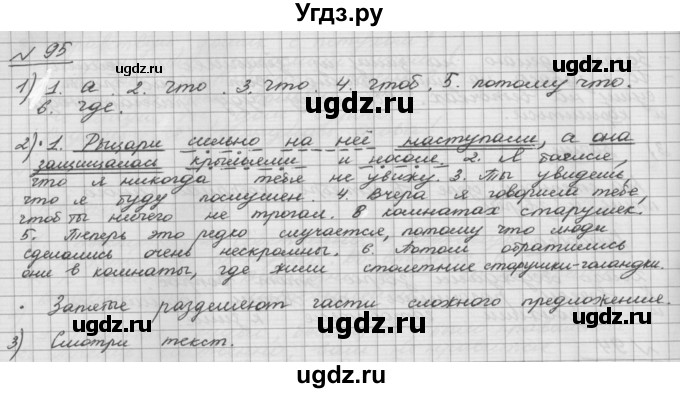 Угдз.ру
№ 95
1) 1. а . 2. что . 3. что. 4. чтоб. 5. потому что.
в. где.
2) • 1. Рыцари сильно на неё наступали, а она
защищалась крыльями и носом. 2. Я боялся,
что я никогда тебя не увижу. 3. Ты увидешь,
что я буду послушен. 4. Вчера я говорил тебе,
чтоб ты ничего не трогал. В комнатах старушек.
5. Теперь это редко случается, потому что люди
сделались очень нескромны. в. Потом обратились
они в комнаты, где жили столетние старушки-голандки.
• Запятые разделяют части сложного предложение.
3) Смотри текст.
Угдз.ру
ugdz.ru
ugdz.ru
ugdz.ru
ugdz.ru
ugdz.ru
ugdz.ru
ugdz.ru
ugdz.ru
ugdz.ru
ugdz.ru